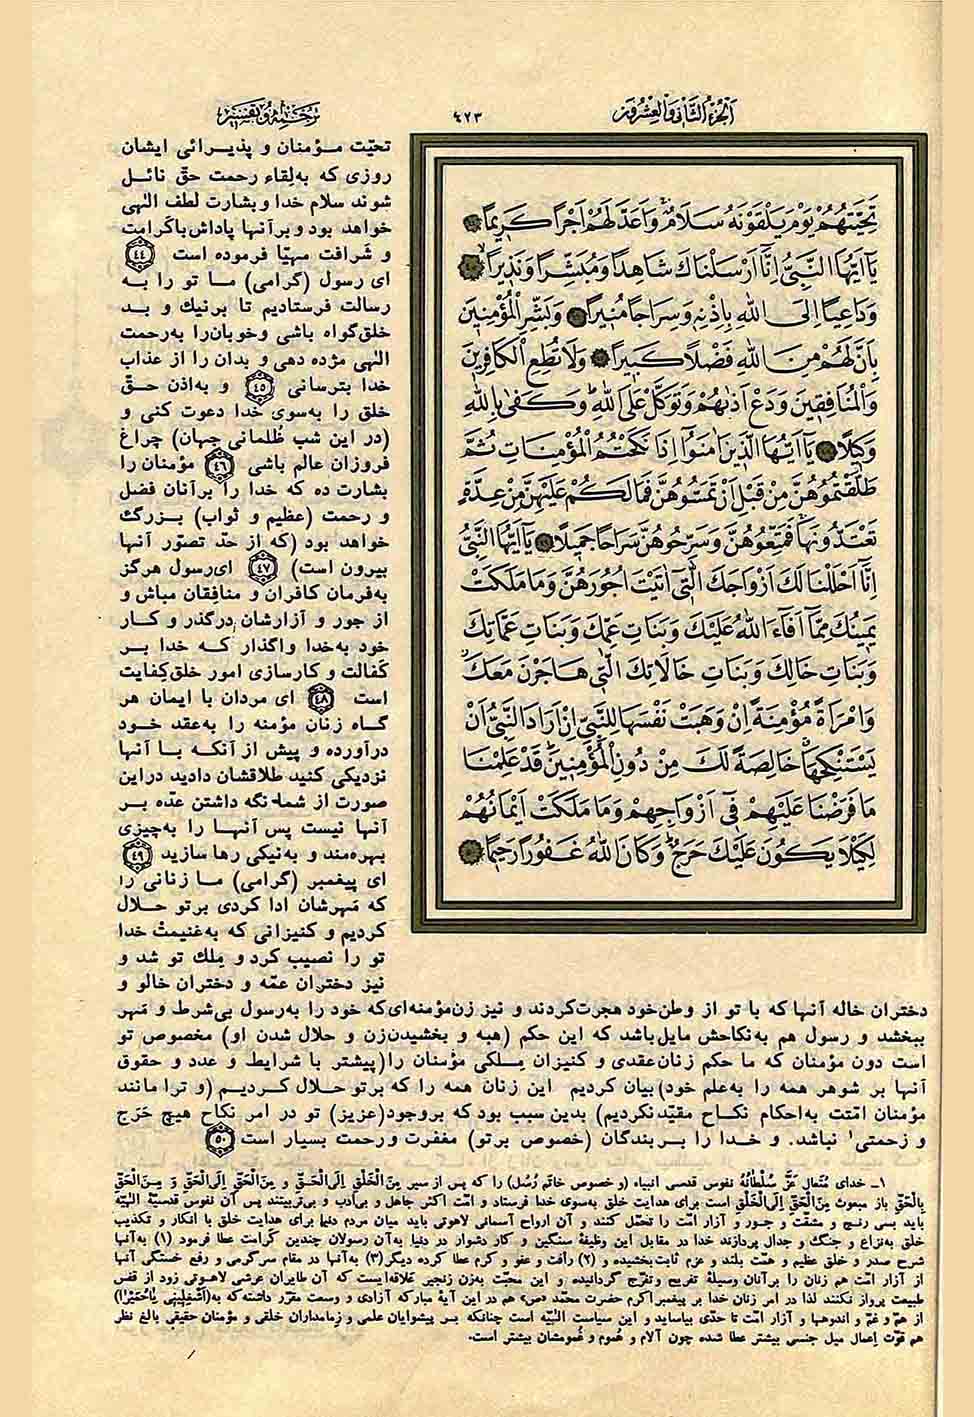 اَلْجُزْءُ الثَّانِی وَالْعِشْرُونَ
٤٢٣
ترجمه و تفسیر
تَحِيَّتُهُمْ يَوْمَ يَلْقَوْنَهُ سَلَامٌ وَاَعَدَّ لَهُمْ اَجْرًا كَرِيمًا
يَا اَيُّهَا النَّبِيُّ اِنَّا اَرْسَلْنَاكَ شَاهِدًا وَمُبَشِّرًا وَنَذِيرًا
وَدَاعِيًا اِلَى اللهِ بِاِذْنِهِ وَسِرَاجًا مُنِيرًا وَبَشِّرِ الْمُؤْمِنِينَ
بِاَنَّ لَهُمْ مِنَ اللهِ فَضْلًا كَبِيرًا وَلَا تُطِعِ الْكَافِرِينَ
وَالْمُنَافِقِينَ وَدَعْ اَذٰىهُمْ وَتَوَكَّلْ عَلَى اللهِ وَكَفٰى بِاللهِ
وَكِيلًا يَا اَيُّهَا الَّذِينَ اٰمَنُوا اِذَا نَكَحْتُمُ الْمُؤْمِنَاتِ ثُمَّ
طَلَّقْتُمُوهُنَّ مِنْ قَبْلِ اَنْ تَمَسُّوهُنَّ فَمَا لَكُمْ عَلَيْهِنَّ مِنْ عِدَّةٍ
تَعْتَدُّونَهَا فَمَتِّعُوهُنَّ وَسَرِّحُوهُنَّ سَرَاحًا جَمِيلًا يَا اَيُّهَا النَّبِيُّ
اِنَّا اَحْلَلْنَا لَكَ اَزْوَاجَكَ الّٰتِى اٰتَيْتَ اُجُورَهُنَّ وَمَا مَلَكَتْ
يَمِينُكَ مِمَّا اَفَاءَ اللهُ عَلَيْكَ وَبَنَاتِ عَمِّكَ وَبَنَاتِ عَمَّاتِكَ
وَبَنَاتِ خَالِكَ وَبَنَاتِ خَالَاتِكَ الّٰتِى هَاجَرْنَ مَعَكَ
وَامْرَاَةً مُؤْمِنَةً اِنْ وَهَبَتْ نَفْسَهَا لِلنَّبِيِّ اِنْ اَرَادَ النَّبِيُّ اَنْ
يَسْتَنْكِحَهَا خَالِصَةً لَكَ مِنْ دُونِ الْمُؤْمِنِينَ قَدْ عَلِمْنَا
مَا فَرَضْنَا عَلَيْهِمْ فِى اَزْوَاجِهِمْ وَمَا مَلَكَتْ اَيْمَانُهُمْ
لِكَيْلَا يَكُونَ عَلَيْكَ حَرَجٌ وَكَانَ اللهُ غَفُورًا رَحِيمًا
تحیّت مؤمنان و پذیرائی ایشان
روزی که به‌لقاء رحمت حقّ نائل
شوند سلام خدا و بشارت لطف الٰهی
خواهد بود و بر آنها پاداش باکرامت
و شرافت مهیّا فرموده است ﴿٤٤﴾
ای رسول (گرامی) ما تو را به
رسالت فرستادیم تا بر نیك و بد
خلق گواه باشی و خوبان را به‌رحمت
الٰهی مژده دهی و بدان را از عذاب
خدا بترسانی ﴿٤٥﴾ و به‌اذن حقّ
خلق را به‌سوی خدا دعوت کنی و
(در این شب ظلمانی جهان) چراغ
فروزان عالم باشی ﴿٤٦﴾ مؤمنان را
بشارت ده که خدا را بر آنان فضل
و رحمت (عظیم و ثواب) بزرگ
خواهد بود (که از حدّ تصوّر آنها
بیرون است) ﴿٤٧﴾ ای رسول هرگز
به‌فرمان کافران و منافقان مباش و
از جور و آزارشان درگذر و کار
خود به‌خدا واگذار که خدا بر
کفالت و کارسازی امور خلق کفایت
است ﴿٤٨﴾ ای مردان با ایمان هر
گاه زنان مؤمنه را به‌عقد خود
درآورده و پیش از آنکه با آنها
نزدیکی کنید طلاقشان دادید در این
صورت از شما نگه داشتن عدّه بر
آنها نیست پس آنها را به‌چیزی
بهره‌مند و به‌نیکی رها سازید ﴿٤٩﴾
ای پیغمبر (گرامی) ما زنانی را
که مَهرشان ادا کردی بر تو حلال
کردیم و کنیزانی که به‌غنیمت خدا
تو را نصیب کرد و مِلك تو شد و
نیز دختران عمّه و دختران خالو و
دختران خاله آنها که با تو از وطن خود هجرت کردند و نیز زن مؤمنه‌ای که خود را به‌رسول بی‌شرط و مَهر
ببخشد و رسول هم به‌نکاحش مایل باشد که این حکم (هبه و بخشیدن زن و حلال شدن او) مخصوص تو
است دون مؤمنان که ما حکم زنان عقدی و کنیزان مِلکی مؤمنان را (پیشتر با شرایط و عدد و حقوق
آنها بر شوهر همه را به‌علم خود) بیان کردیم این زنان همه را که بر تو حلال کردیم (و ترا مانند
مؤمنان امّتت به‌احکام نکاح مقیّد نکردیم) بدین سبب بود که بر وجود (عزیز) تو در امر نکاح هیچ حَرَج
و زحمتی ۱ نباشد. و خدا را بر بندگان (خصوص بر تو) مغفرت و رحمت بسیار است ﴿٥٠﴾
۱ـ خدای مُتعال عَزَّ سُلْطَانُهُ نفوس قدسی انبیاء (و خصوص خاتم رُسُل) را که پس از سیر مِنَ الْخَلْقِ اِلَى الْحَقِّ و مِنَ الْحَقِّ اِلَى الْحَقِّ وَ مِنَ الْحَقِّ
بِالْحَقِّ باز مبعوث مِنَ الْحَقِّ اِلَى الْخَلْقِ است برای هدایت خلق به‌سوی خدا فرستاد و امّت اکثر جاهل و بی‌ادب و بی‌تربیتند پس آن نفوس قدسیّهٔ الٰهیّه
باید بسی رنج و مشقّت و جور و آزار امّت را تحمّل کنند و آن ارواح آسمانی لاهوتی باید میان مردم دنیا برای هدایت خلق با انکار و تکذیب
خلق به‌نزاع و جنگ و جدال پردازند خدا در مقابل این وظیفهٔ سنگین و کار دشوار در دنیا به‌آن رسولان چندین کرامت عطا فرمود (۱) به‌آنها
شرح صدر و خلق عظیم و همّت بلند و عزم ثابت بخشیده و (۲) رأفت و عفو و کرم عطا کرده دیگر (۳) به‌آنها در مقام سرگرمی و رفع خستگی آنها
از آزار امّت هم زنان را بر آنان وسیلهٔ تفریح و تفرّج گردانیده و این محبّت به‌زن زنجیر علاقه‌ایست که آن طایران عرشی لاهوتی زود از قفس
طبیعت پرواز نکنند لذا در امر زنان خدا بر پیغمبر اکرم حضرت محمّد «ص» هم در این آیهٔ مبارکه آزادی و وسعت مقرّر داشته که به (اَشْغِلِینِی یَاحُمَیْرَا)
از همّ و غمّ و اندوهها و آزار امّت تا حدّی بیاساید و این سیاست الٰهیّه است چنانکه بر پیشوایان علمی و زمامداران خلقی و مؤمنان حقیقی بالغ نظر
هم قوّت اِعمال میل جنسی بیشتر عطا شده چون آلام و هُموم و غُمومشان بیشتر است.